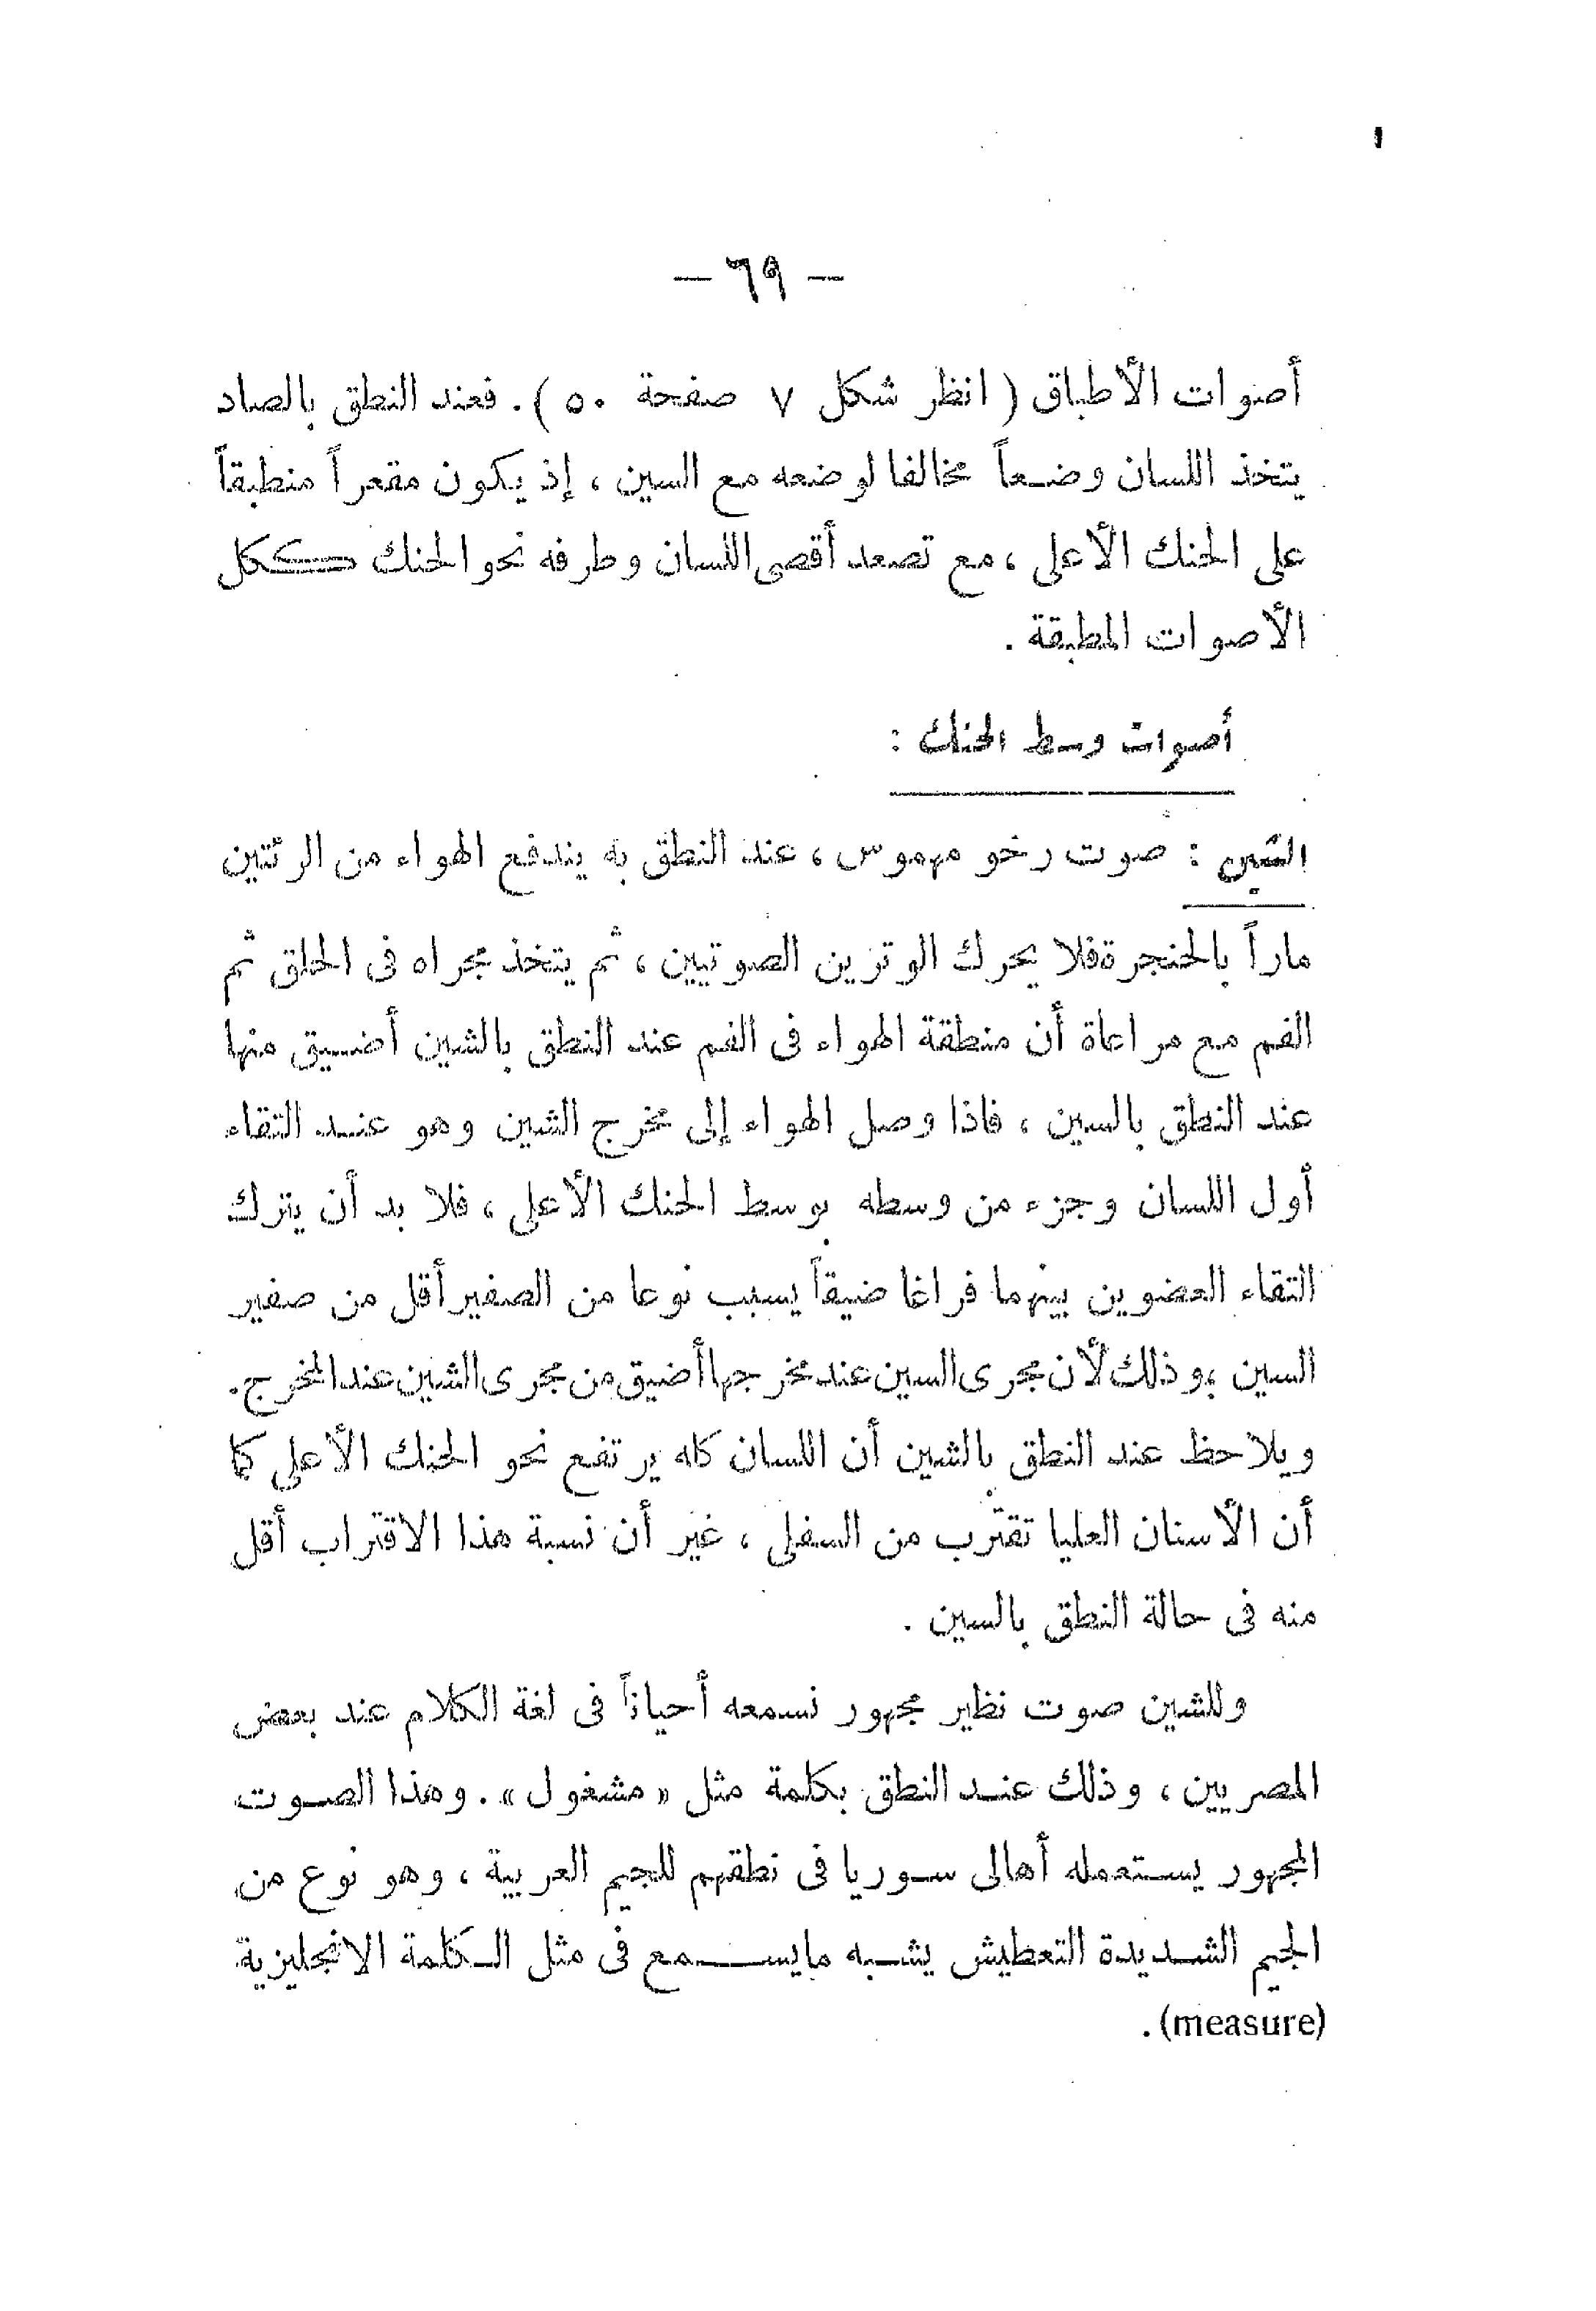 — ٦٩ —
أصوات الأطباق ( انظر شكل ٧ صفحة ٥٠ ) . فعند النطق بالصاد
يتخذ اللسان وضعاً مخالفا لوضعه مع السين ، إذ يكون مقعراً منطبقاً
على الحنك الأعلى ، مع تصعد أقصى اللسان وطرفه نحو الحنك ككل
الأصوات المطبقة .
أصوات وسط الحنك :
الشين : صوت رخو مهموس ، عند النطق به يندفع الهواء من الرئتين
ماراً بالحنجرة فلا يحرك الوترين الصوتيين ، ثم يتخذ مجراه فى الحلق ثم
الفم مع مراعاة أن منطقة الهواء فى الفم عند النطق بالشين أضيق منها
عند النطق بالسين ، فاذا وصل الهواء إلى مخرج الشين وهو عند التقاء
أول اللسان وجزء من وسطه بوسط الحنك الأعلى ، فلا بد أن يترك
التقاء العضوين بينهما فراغا ضيقاً يسبب نوعا من الصفير أقل من صفير
السين ، وذلك لأن مجرى السين عند مخرجها أضيق من مجرى الشين عند المخرج .
ويلاحظ عند النطق بالشين أن اللسان كله يرتفع نحو الحنك الأعلى كما
أن الأسنان العليا تقترب من السفلى ، غير أن نسبة هذا الاقتراب أقل
منه فى حالة النطق بالسين .
وللشين صوت نظير مجهور نسمعه أحياناً فى لغة الكلام عند بعض
المصريين ، وذلك عند النطق بكلمة مثل « مشغول » . وهذا الصوت
المجهور يستعمله أهالى سوريا فى نطقهم للجيم العربية ، وهو نوع من
الجيم الشديدة التعطيش يشبه ما يسمع فى مثل الكلمة الانجليزية
(measure) .